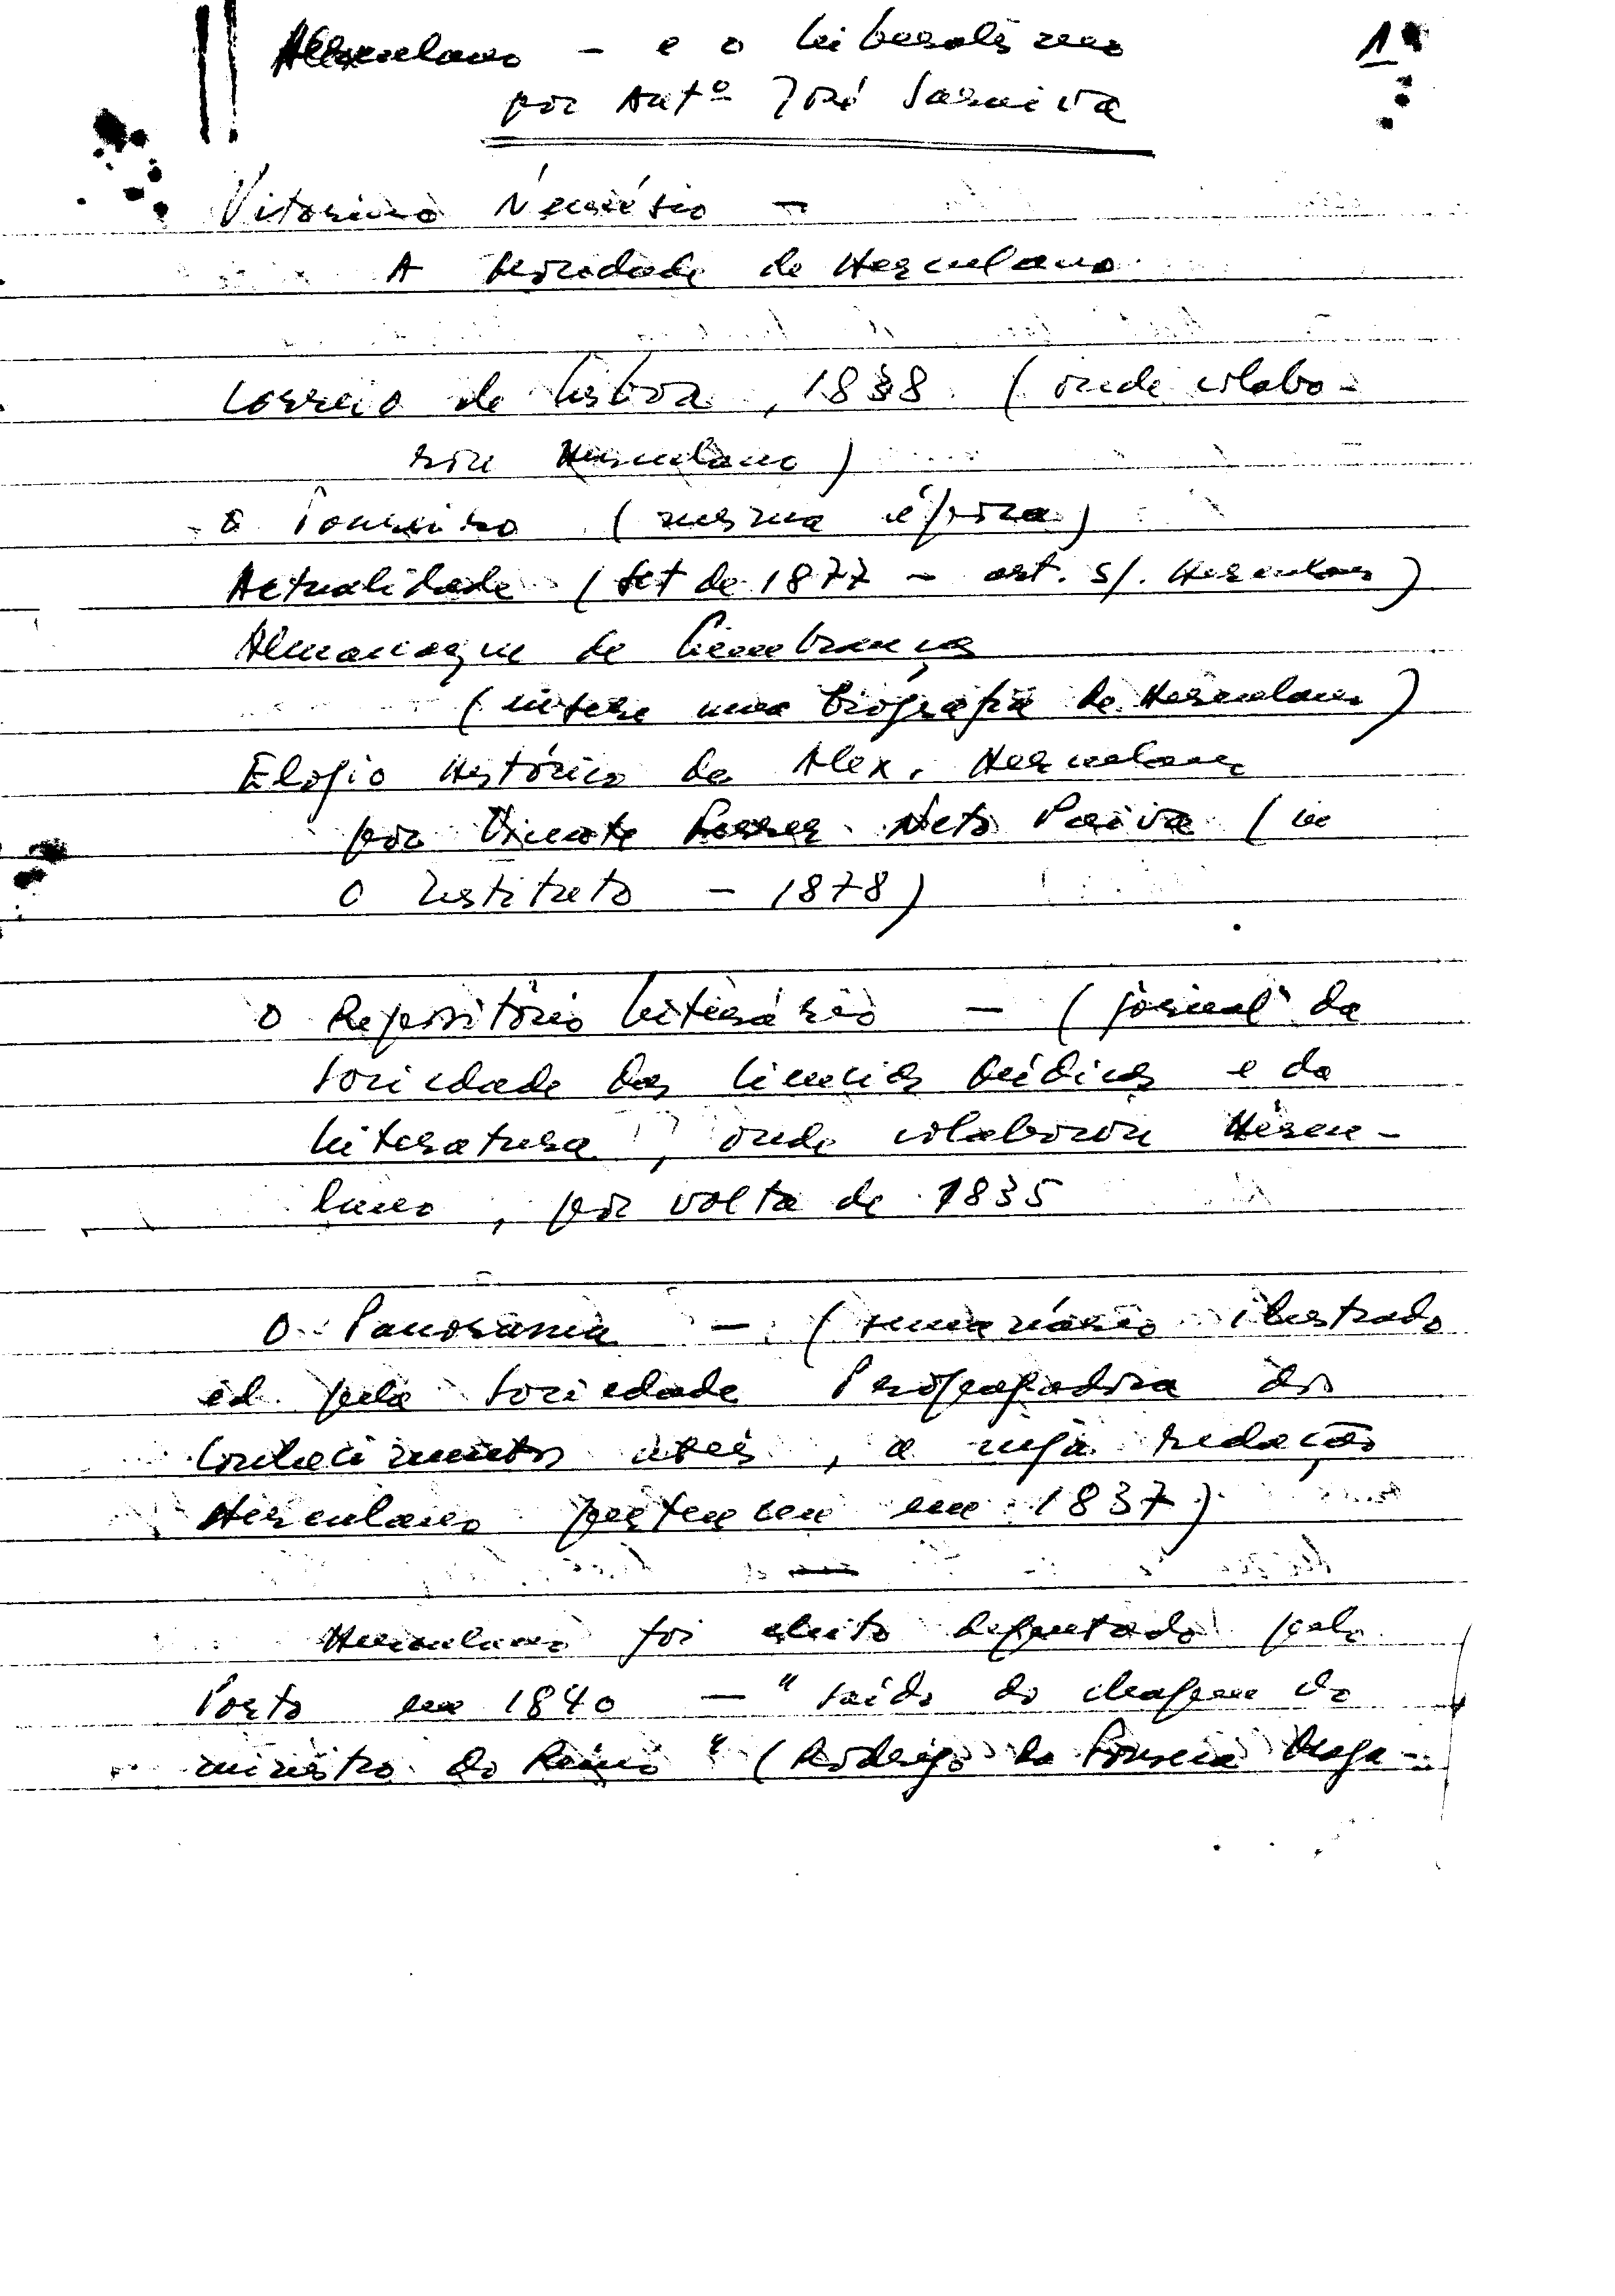 Herculano - e o Liberalismo 1
por Antº José Saraiva
Vitorino Nemésio -
A Mocidade de Herculano
Correio de Lisboa, 1838 (onde colabo-
rou Herculano)
(mesma época)
Actualidade (Set de 1877 - art. s/. Herculano)
Almanaque de Lembranças
(insere uma biografia de Herculano)
Elogio Histórico de Alex. Herculano
por Vicente Ferrer Neto Paiva (in
O Instituto - 1878)
O Repositório Literário - (jornal da
Sociedade das Ciências Médicas e da
Literatura, onde colaborou Hercu-
lano, por volta de 1835
O Panorama - (semanário ilustrado
ed. pela Sociedade Propagadora dos
Conhecimentos Úteis, a cuja redacção
Herculano pertenceu em 1837)
Herculano foi eleito deputado pelo
Porto em 1840 - "saído do chapéu do
ministro do Reino" (Rodrigo da Fonseca Maga-